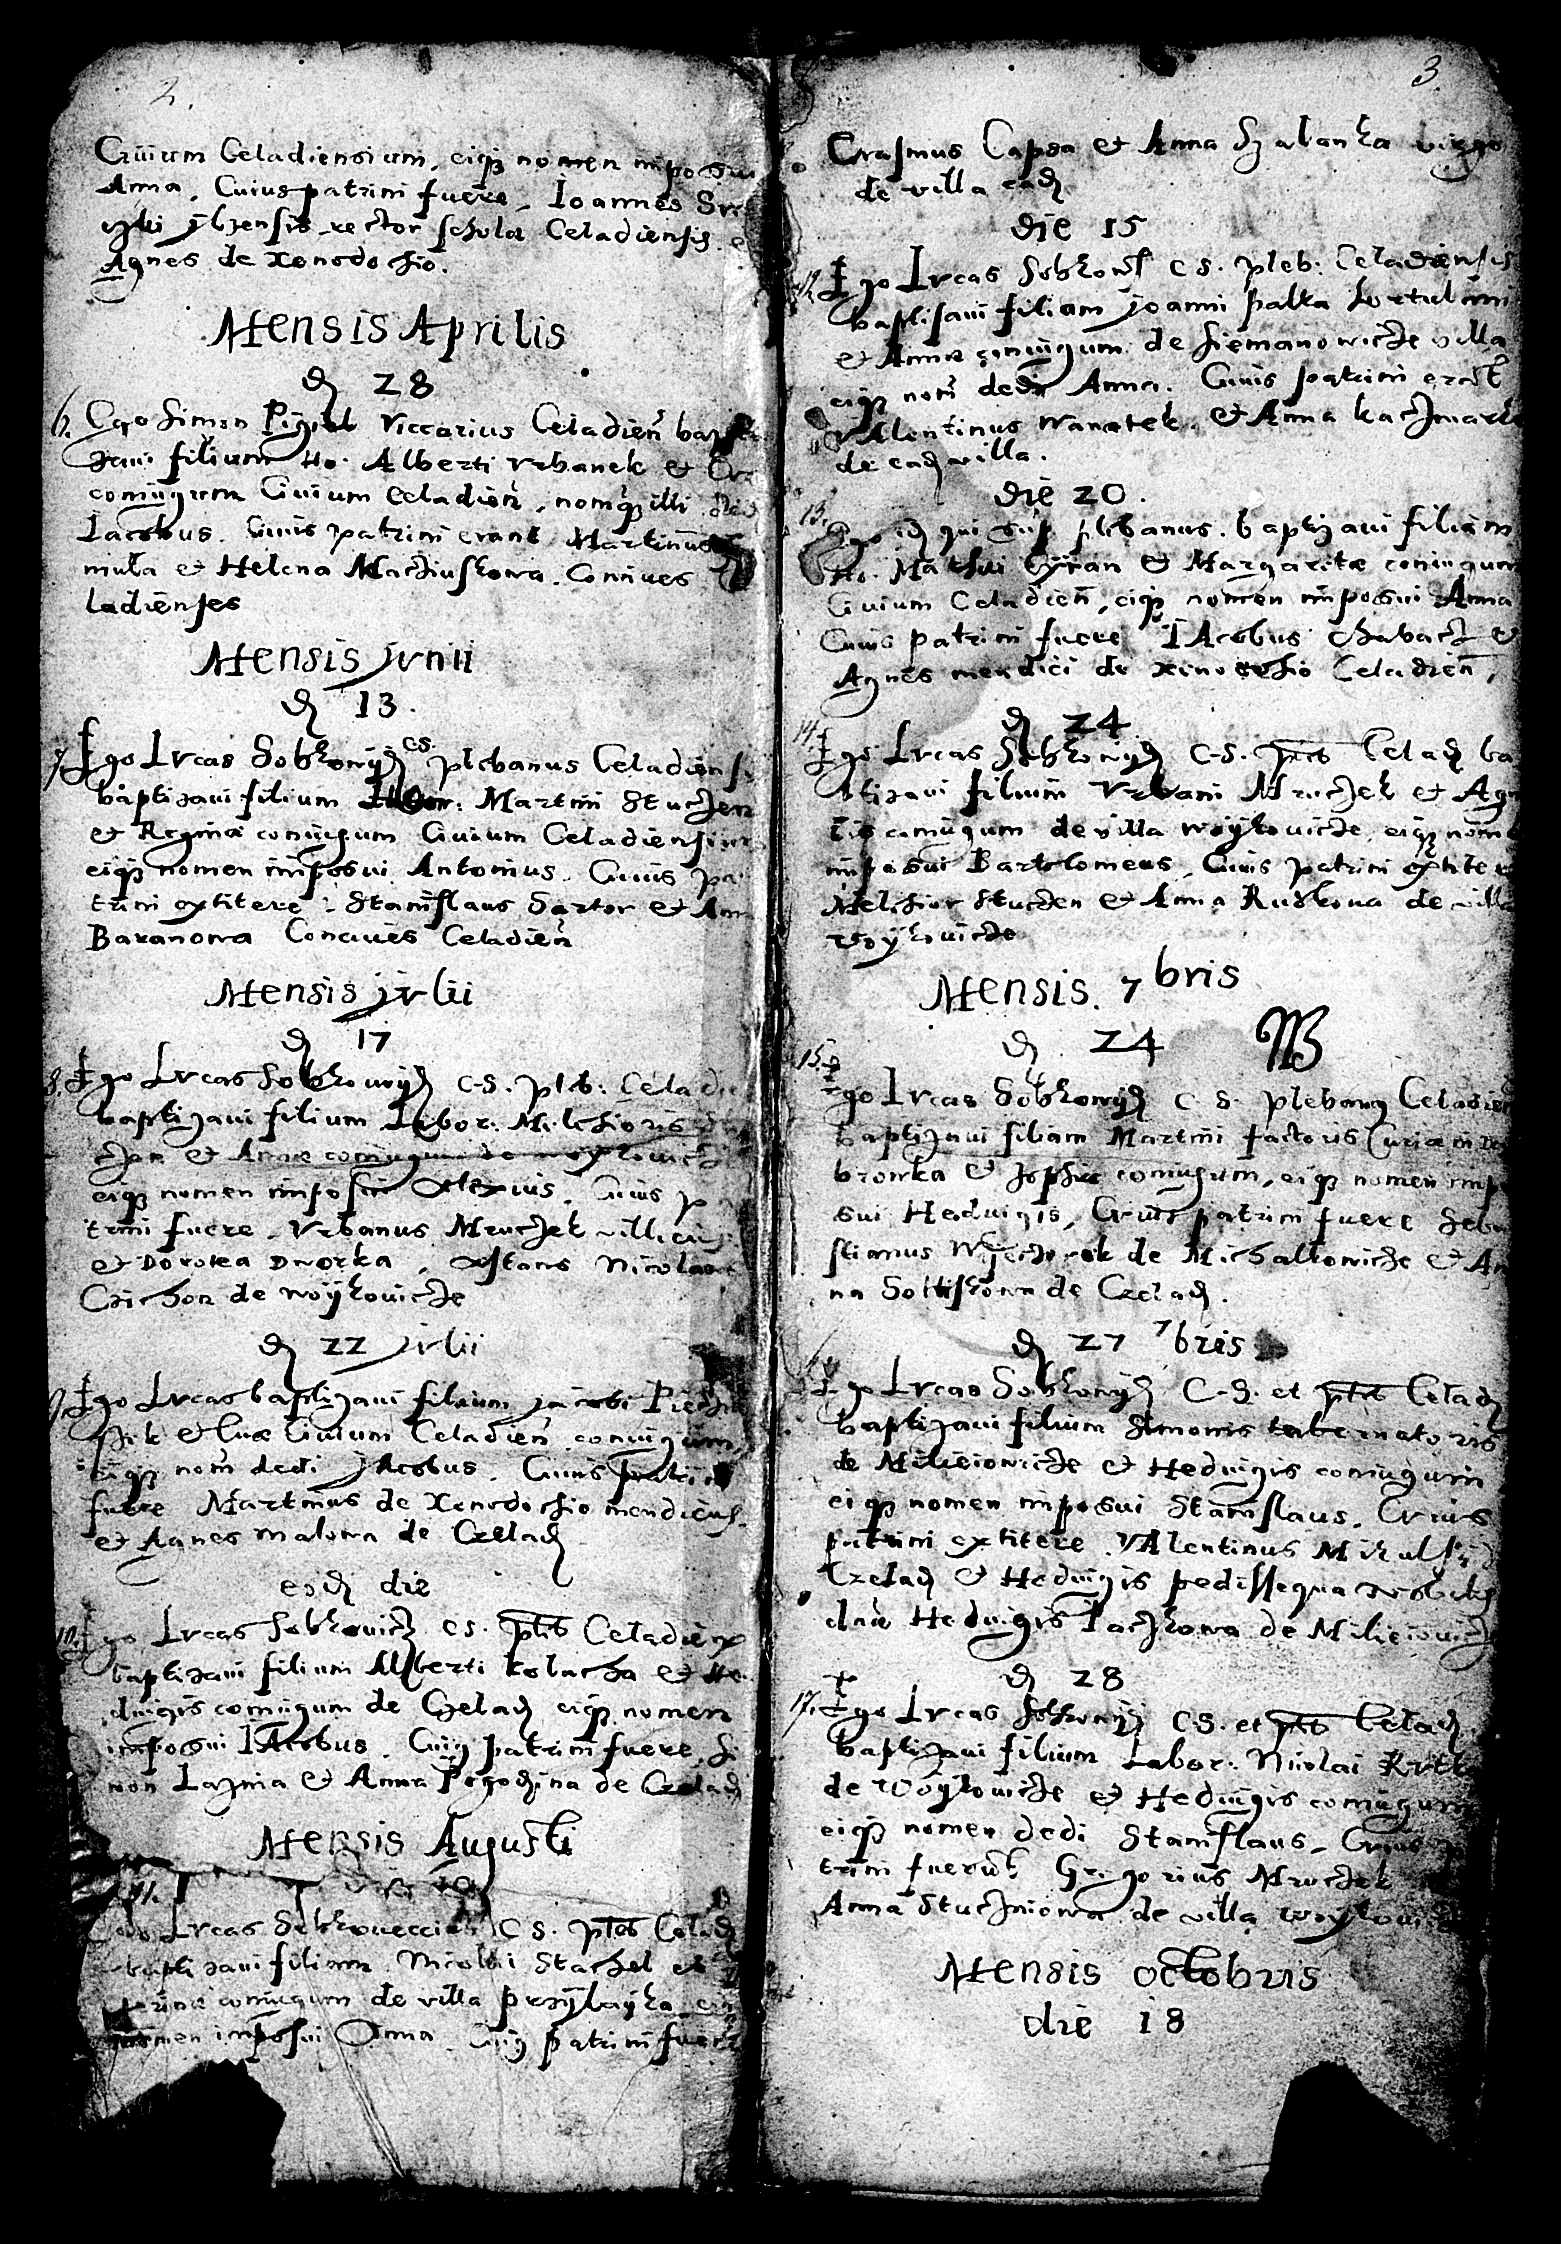 2.
Civium Celadiensium, eiq nomen imposui
Anna, Cuius patrini fuere, Ioannes
rector scholæ Celadiensis
Agnes de Xenodochio.
Mensis Aprilis
D 28
6. Ego Simon Viccarius Celadien bapti
zaui filium Ho. Alberti Vrbanek et
coniugum Ciuium Celadien, nomq illi
Iacobus. Cuius patrini erant Martinus
et Helena Maciuskowa. Conciues
ladienses
Mensis Jvnii
D 13.
7. Ego Lvcas Sobkowyc CS. plebanus Celadiensis
baptizaui filium Martini Stuczen
et Reginæ coniugum Ciuium Celadiensium
eiq nomen imposui Antonius. Cuius pa
trini extitere, Stanislaus Sartor et Anna
Baranowa Conciues Celadien
Mensis jvlii
D 17
8. Ego Lvcas Sobkowyc C-S. pleb. Celadien
baptizaui filium Labor. Melchioris
czen et Annæ coniugum de woykouicze
eiq nomen imposui Alexius. Cuius pa
trini fuere, Vrbanus Mruczek villicus
et Dorotea Dworka, Astans Nicolaus
Czichon de woykouicze
D 22 jvlii
9. Ego Lvcas baptizaui filium jacobi
et Euæ Ciuium Celadien coniugum,
eiq nom dedi jacobus. Cuius patrini
fuere Martinus de Xenodochio mendicus
et Agnes malowa de Czelad
eod die
10. Ego Lvcas Sobkouicz CS. pleb Celadien
baptizaui filium Alberti kolacha et He
duigis coniugum de Czelad eiq nomen
imposui Iacobus. Cuius patrini fuere, Si
mon Laznia et Anna Pogodzina de Czelad
Mensis Augusti
11.
Ego Lvcas CS. pleb Celad
baptizaui filiam Nicolai Stachel et
coniugum de villa przylayka
nomen imposui Anna. Cuius patrini fuere
3.
Erasmus Capsa et Anna Szalanka virgo
de villa ead
die 15
12. Ego Lvcas Sobkows CS. pleb: Celadiensis
baptisaui filiam joanni palka hortulani
et Annæ coniugum de Siemanowicze villa
eiq nom dedi Anna. Cuius patrini erant
Valentinus Wanatek, et Anna kaczmarka
de ead villa.
die 20.
13. Ego id qui sup plebanus. baptizaui filiam
Ho. Mathei et Margaritæ coniugum
Ciuium Celadien, eiq nomen imposui Anna
Cuius patrini fuere Iacobus Chabacz et
Agnes mendici de xenodochio Celadien,
D 24
14. Ego Lvcas Sobkowyc C-S. pleb Celad ba
ptizaui filium Vrbani Mruczek et Agne
tis coniugum de villa woykouicze, eiq nomen
imposui Bartolomeus, Cuius patrini extitere
Melchior Stuczen et Anna Ruskowa de villa
Woykouicze
Mensis 7bris
D 24 NB
15. Ego Lvcas Sobkowyc C S. plebanus Celadien
baptizaui filiam Martini factoris Curiæ in Do
browka et Zophiæ coniugum, eiq nomen impo
sui Heduigis, Cuius patrini fuere Seba
stianus de Michalkowicze et An
na de Czelad.
D 27 7bris
16. Ego Lvcas Sobkowyc C-S. et pleb Celad
baptizaui filium Simonis tabernatoris
de Milieiowicze et Heduigis coniugum
eiq nomen imposui Stanislaus, Cuius
patrini extitere, Valentinus Mikulski
Czelad et Heduigis pedissequa nobilis
dnæ Heduigis de Milieiouicze
D 28
17. Ego Lvcas Sobkowyc CS. et pleb Celad
baptizaui filium Labor. Nicolai
de Woykouicze et Heduigis coniugum
eiq nomen dedi Stanislaus, Cuius pa
trini fuerut Gregorius Mruczek
Anna Stuczniowa de villa woykouicze
Mensis octobris
die 18